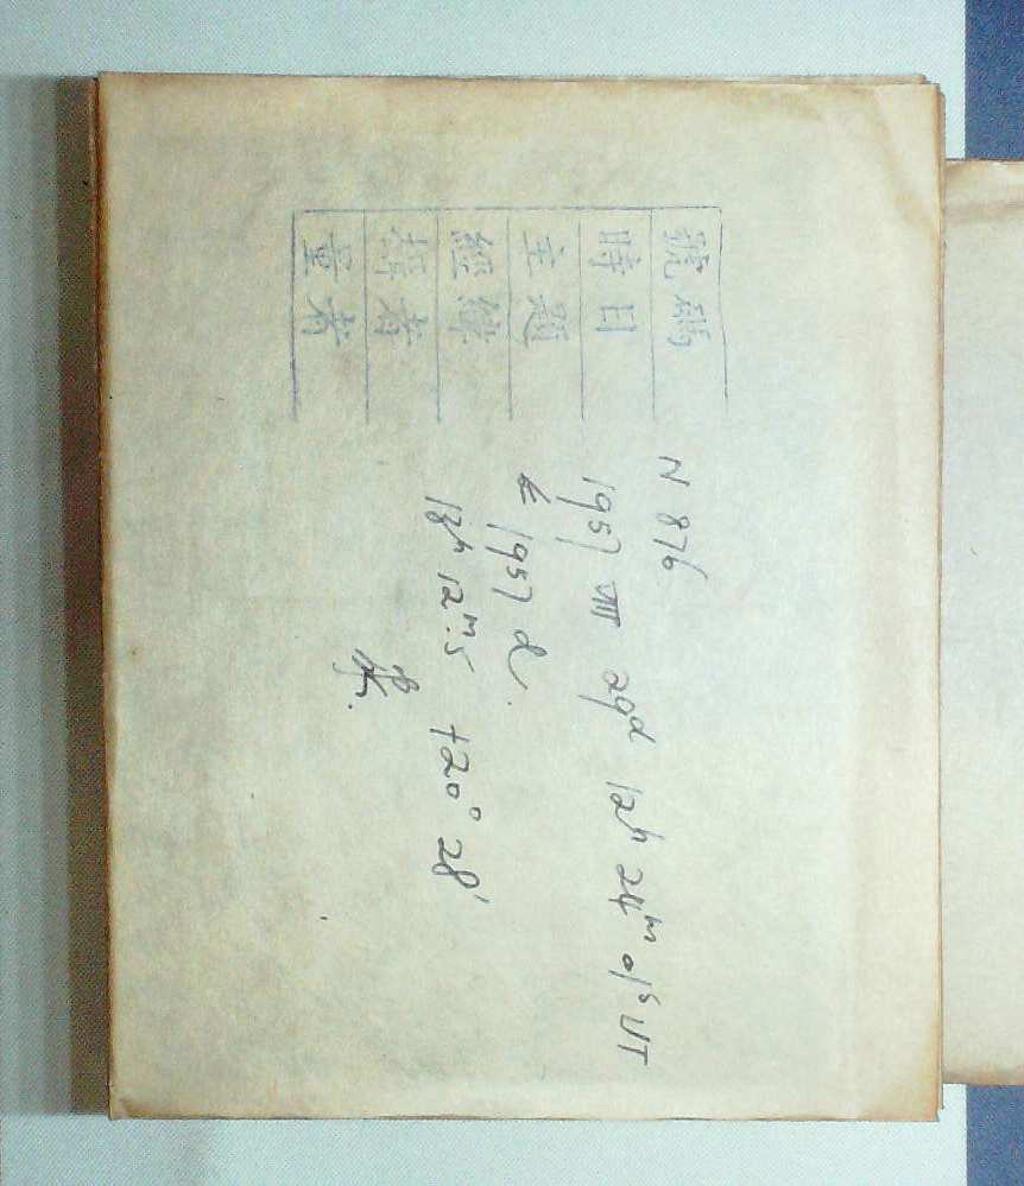 號碼 N 876
時日 1957 VIII 29d 12h 24m 01s UT
主題 1957 d.
經緯 13h 12m.5 +20° 28'
撮者
量者